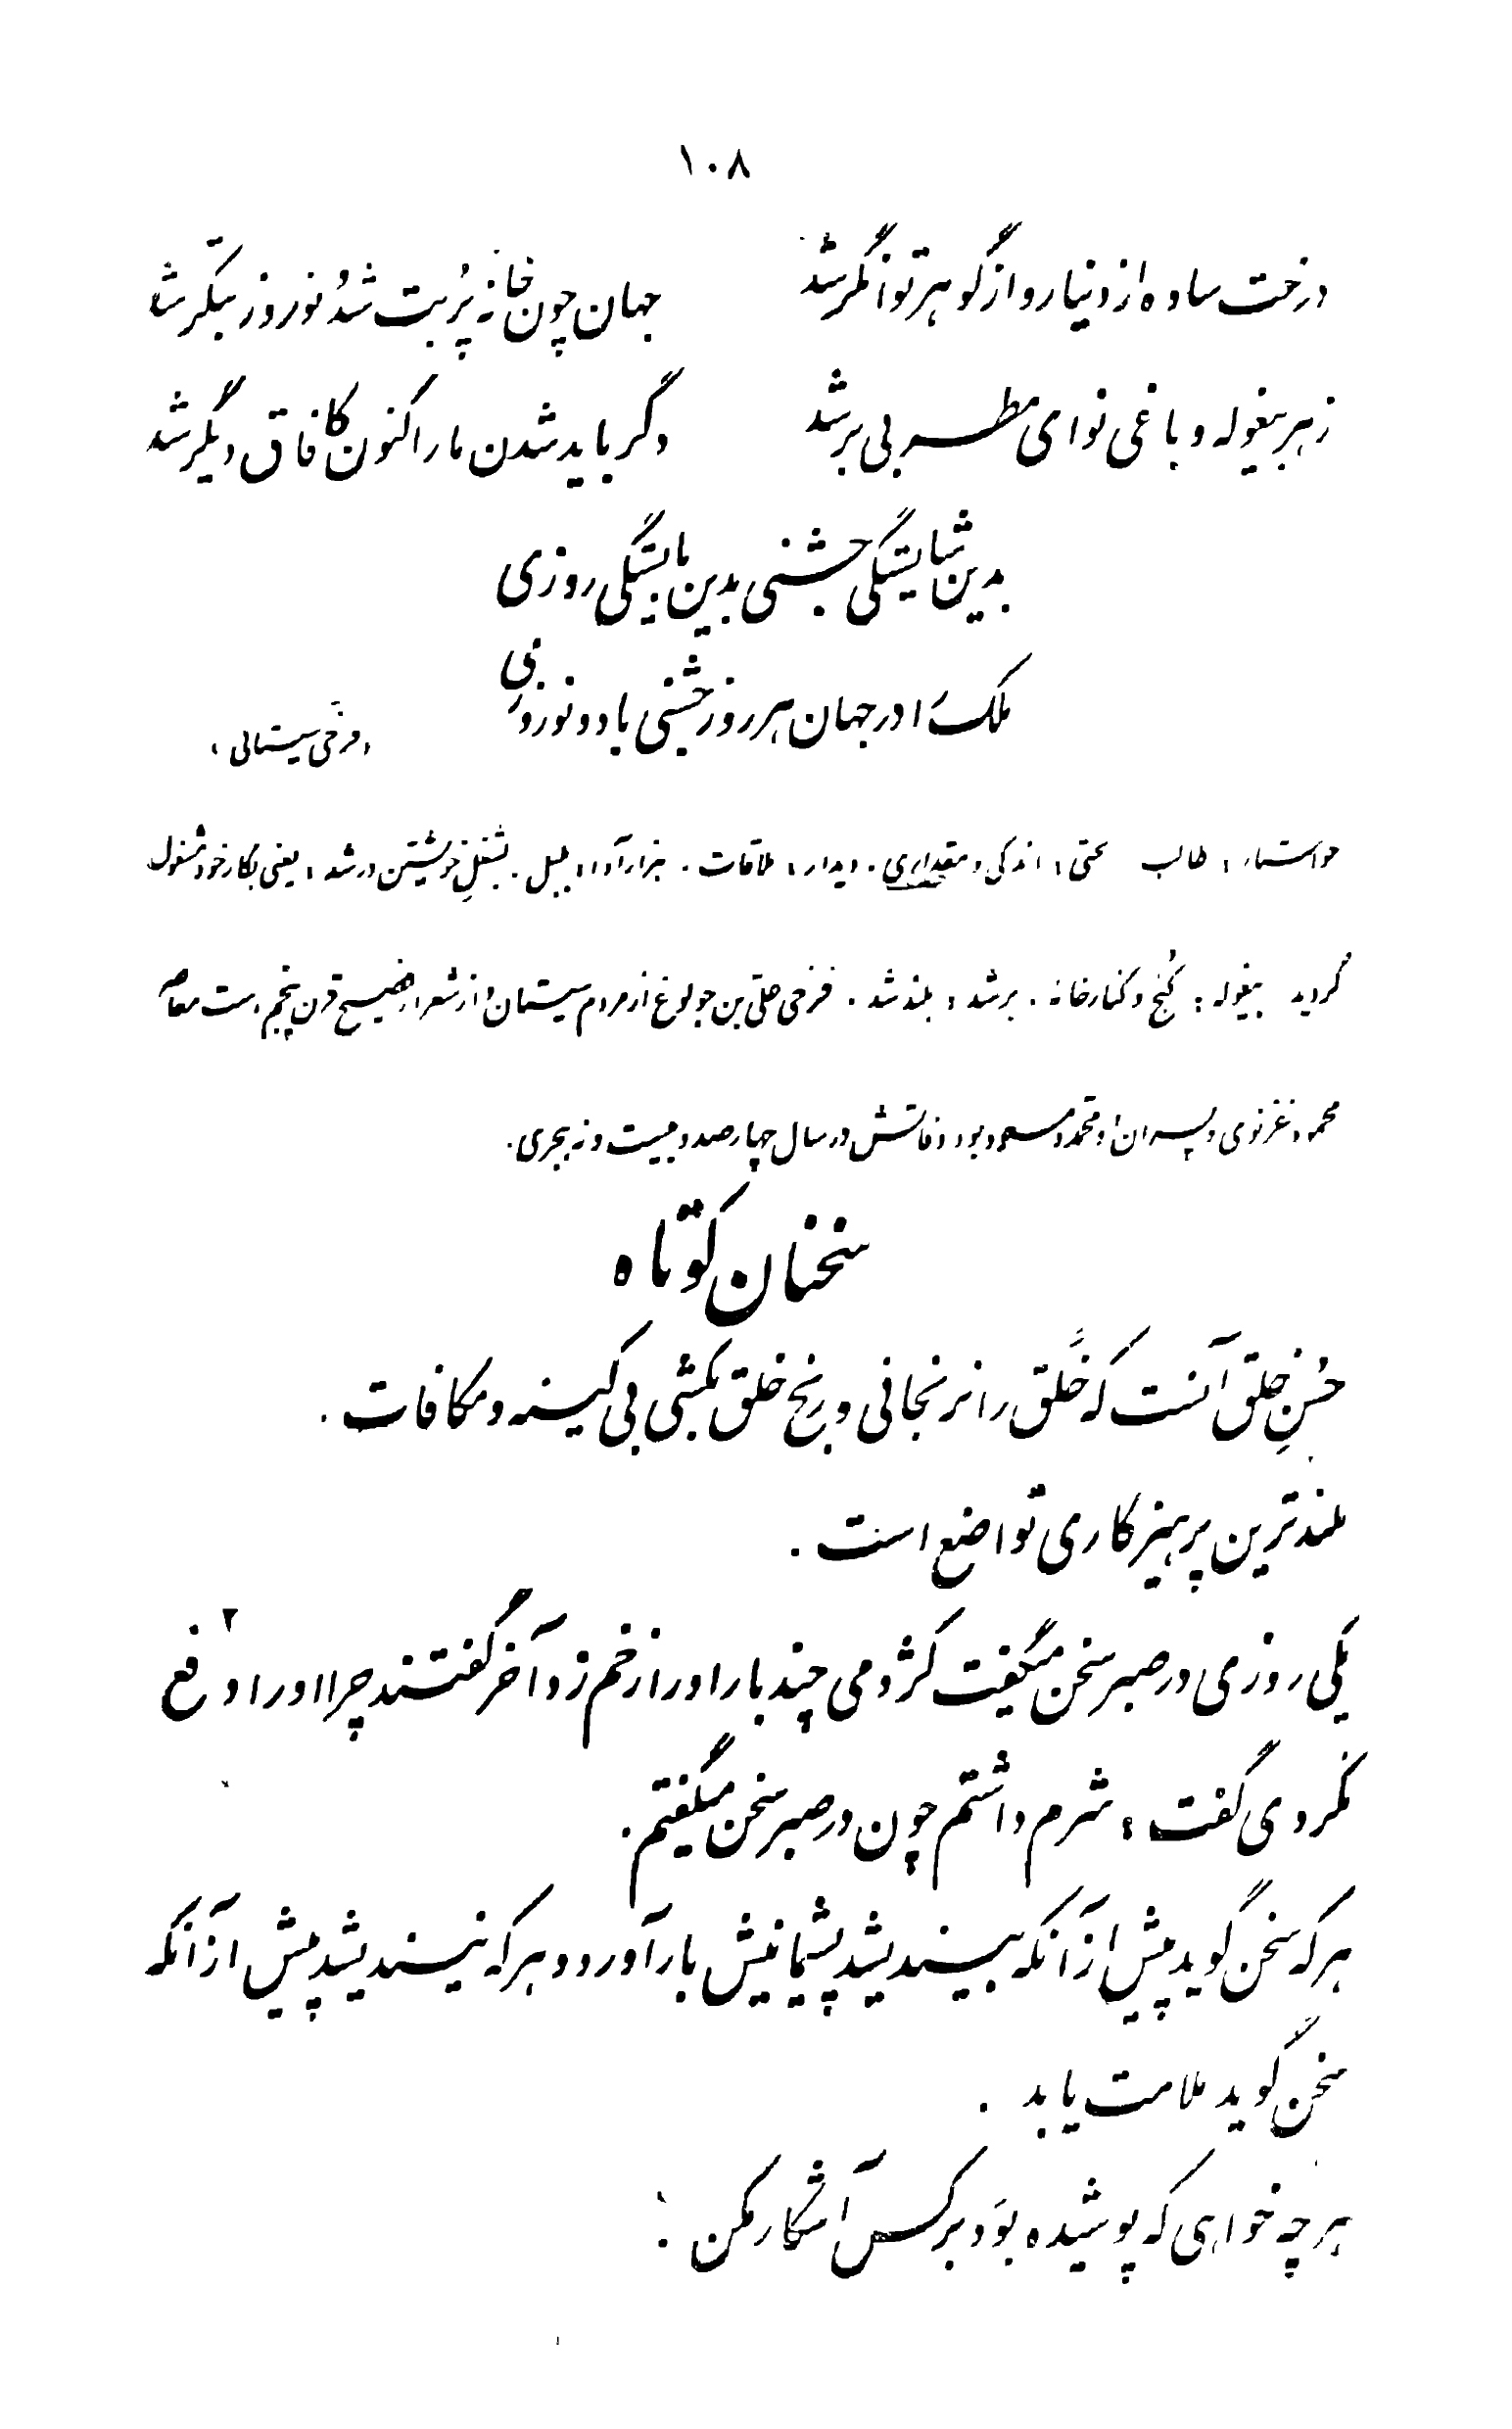 ۱۰۸
درخت ساده از دینار و از گوهر توانگر شد جهان چون خانهٔ پُر بت شد و نوروز بتگر شد
زهر بیغوله و باغی نوای مطربی بر شد دگر باید شدن ما را کنون کافاق دیگر شد
بدین شایستگی جشنی بدین بایستگی روزی
ملک را در جهان هر روز جشنی باد و نوروزی
، فرخی سیستانی ،
خواستار ، طالب لختی ، اندکی و مقداری . دیدار ، ملاقات . هزارآوا ، بلبل . بشغلِ خویشتن در شد ، یعنی بکار خود مشغول
گردید بیغوله : کُنج و کنار خانه . بر شد ، بلند شد . فرخی علی بن جولوغ از مردم سیستان و از شعراء فصیح قرن پنجم است معاصر
محمود غزنوی و پسران او محمد و مسعود بود وفاتش در سال چهارصد و بیست و نه هجری .
سخنان کوتاه
حُسنِ خلق آنست که خَلق را نرنجانی و رنج خلق بکشی بی کینه و مکافات .
بلندترین پرهیزکاری تواضع است .
یکی روزی در صبر سخن میگفت کژدمی چند بار او را زخم زد آخر گفتند چرا او را دفع
نکردی گفت ، شرم داشتم چون در صبر سخن میگفتم .
هر که سخن گوید پیش از آنکه بیندیشد پشیمانیش بار آورد و هر که بیندیشد پیش از آنکه
سخن گوید ملامت یابد .
هر چه خواهی که پوشیده بوَد بر کس آشکار مکن .